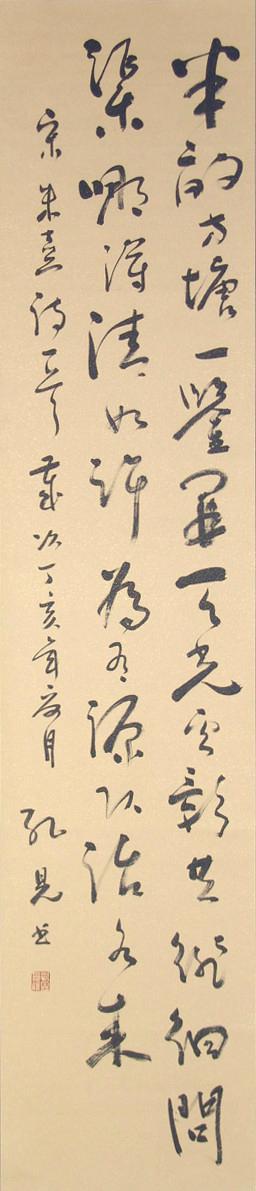 半畝方塘一鑒開天光雲影共徘徊問
渠哪得清如許為有源頭活水來
宋朱熹詩一首歲次丁亥年月孔見書